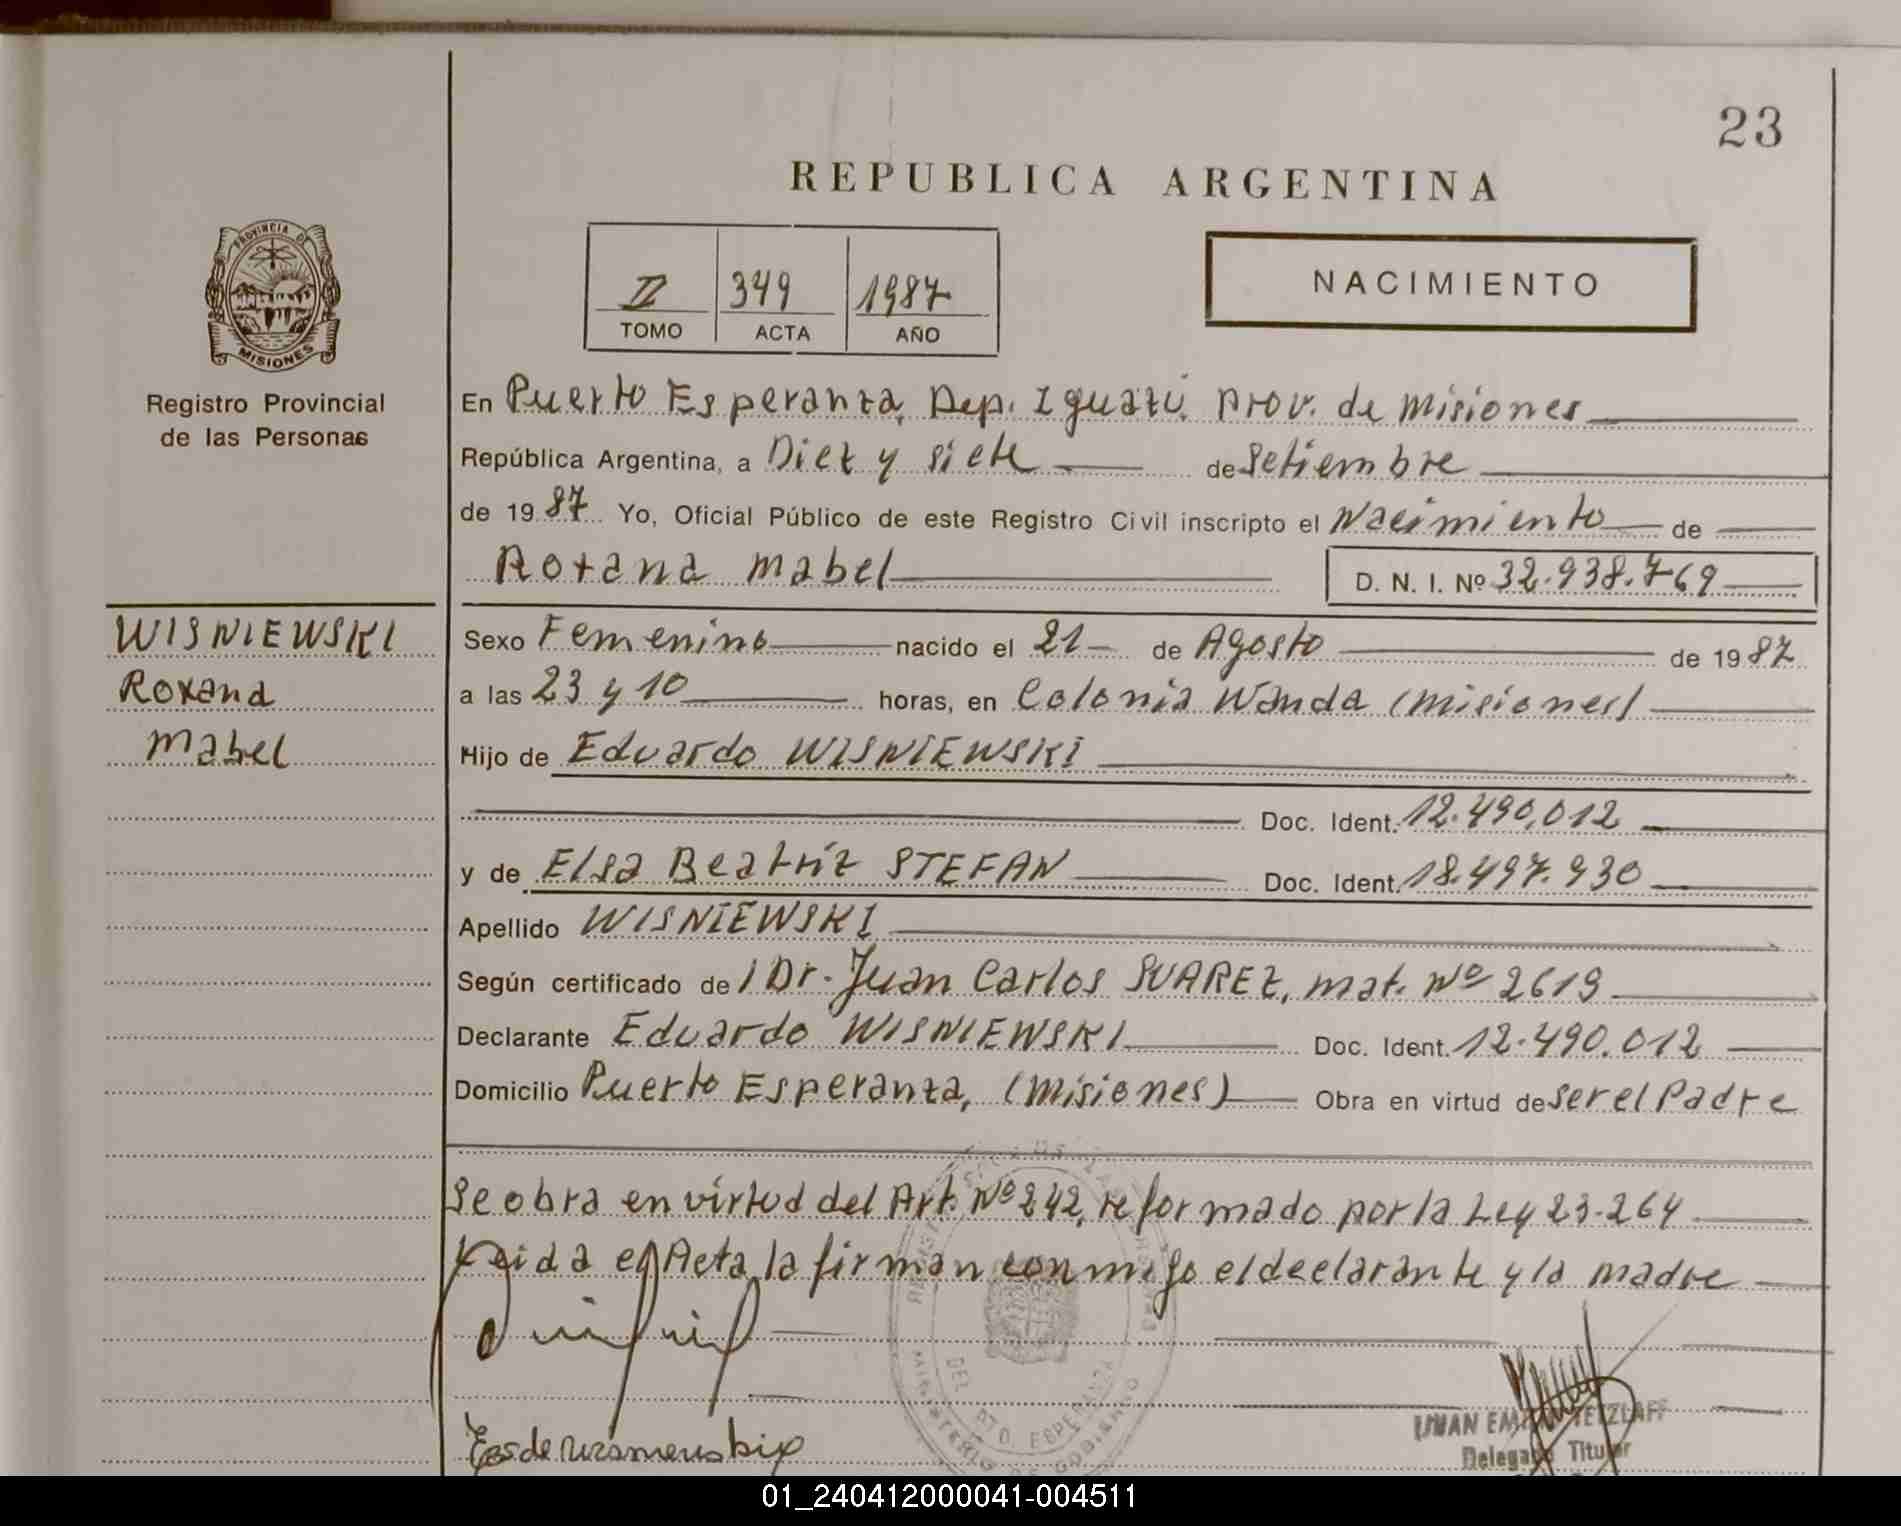 23
REPUBLICA ARGENTINA
PROVINCIA DE
MISIONES
Registro Provincial
de las Personas
II 349 1987
TOMO ACTA AÑO
NACIMIENTO
En Puerto Esperanza, Dep. Iguazú, prov. de Misiones
República Argentina, a Diez y siete de Setiembre
de 1987 Yo, Oficial Público de este Registro Civil inscripto el Nacimiento de
Roxana Mabel D. N. I. Nº 32.938.769
WISNIEWSKI
Roxana
Mabel
Sexo Femenino nacido el 21 de Agosto de 1987
a las 23 y 10 horas, en Colonia Wanda (Misiones)
Hijo de Eduardo WISNIEWSKI
Doc. Ident. 12.490.012
y de Elsa Beatriz STEFAN Doc. Ident. 18.497.930
Apellido WISNIEWSKI
Según certificado de / Dr. Juan Carlos SUAREZ, mat. Nº 2619
Declarante Eduardo WISNIEWSKI Doc. Ident. 12.490.012
Domicilio Puerto Esperanza, (Misiones) Obra en virtud de ser el Padre
Se obra en virtud del Art. Nº 242, reformado por la Ley 23.264
Leida el Acta, la firman conmigo el declarante y la madre
DEL PTO. ESPERANZA
MINISTERIO DE GOBIERNO
TETZLAFF
Delegado Titular
01_240412000041-004511